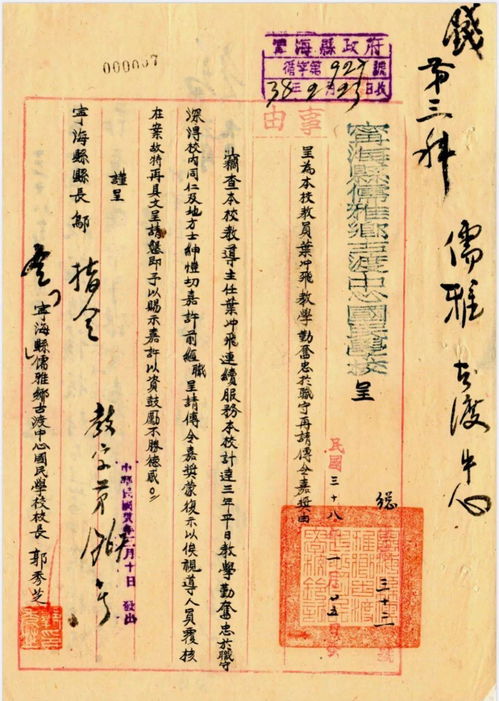 錢
第三科
儒雅 古渡中心
寧海縣政府
儒字第 927 號
38年2月23日收
000037
事由
寧海縣儒雅鄉古渡中心國民學校 呈
民國三十八年一月廿五日
總
三十二
號
呈為本校教員葉冲飛教學勤奮忠於職守再請傳令嘉獎由
竊查本校教導主任葉冲飛連續服務本校計達三年平日教學勤奮忠於職守
深得校內同仁及地方士紳懂切嘉許前經職呈請傳令嘉獎蒙復示以俟視導人員覆核
在案故特再具文呈請懇即予以賜示嘉許以資鼓勵不勝德感。
謹呈
寧海縣縣長 鄔
指令
教字第
號
中華民國
月十日發出
寧海縣儒雅鄉古渡中心國民學校校長 郭秀芝